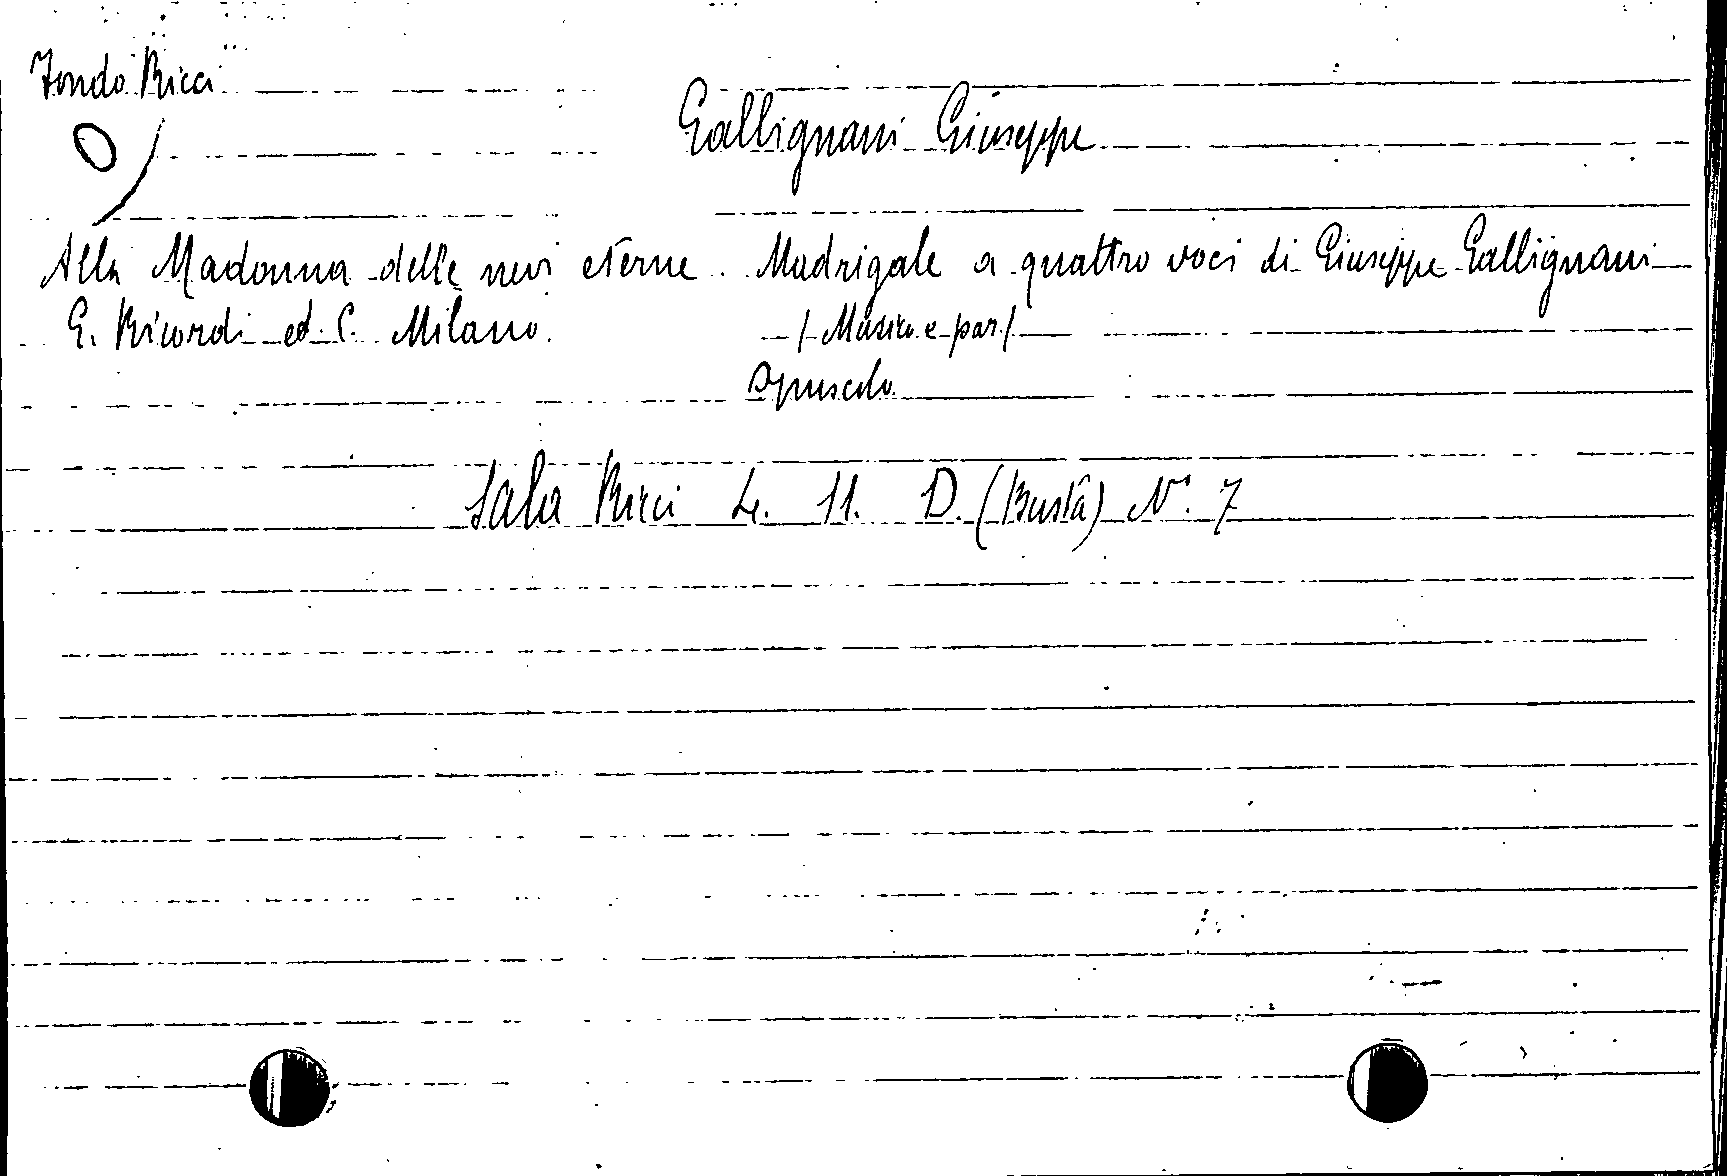 Fondo Ricci
Gallignani Giuseppe
Alla Madonna delle nevi eterne. Madrigale a quattro voci di Giuseppe Gallignani
G. Ricordi ed C. Milano. (Musica e par)
Opuscolo
Sala Ricci Le. 11. D. (Busta) N. 7